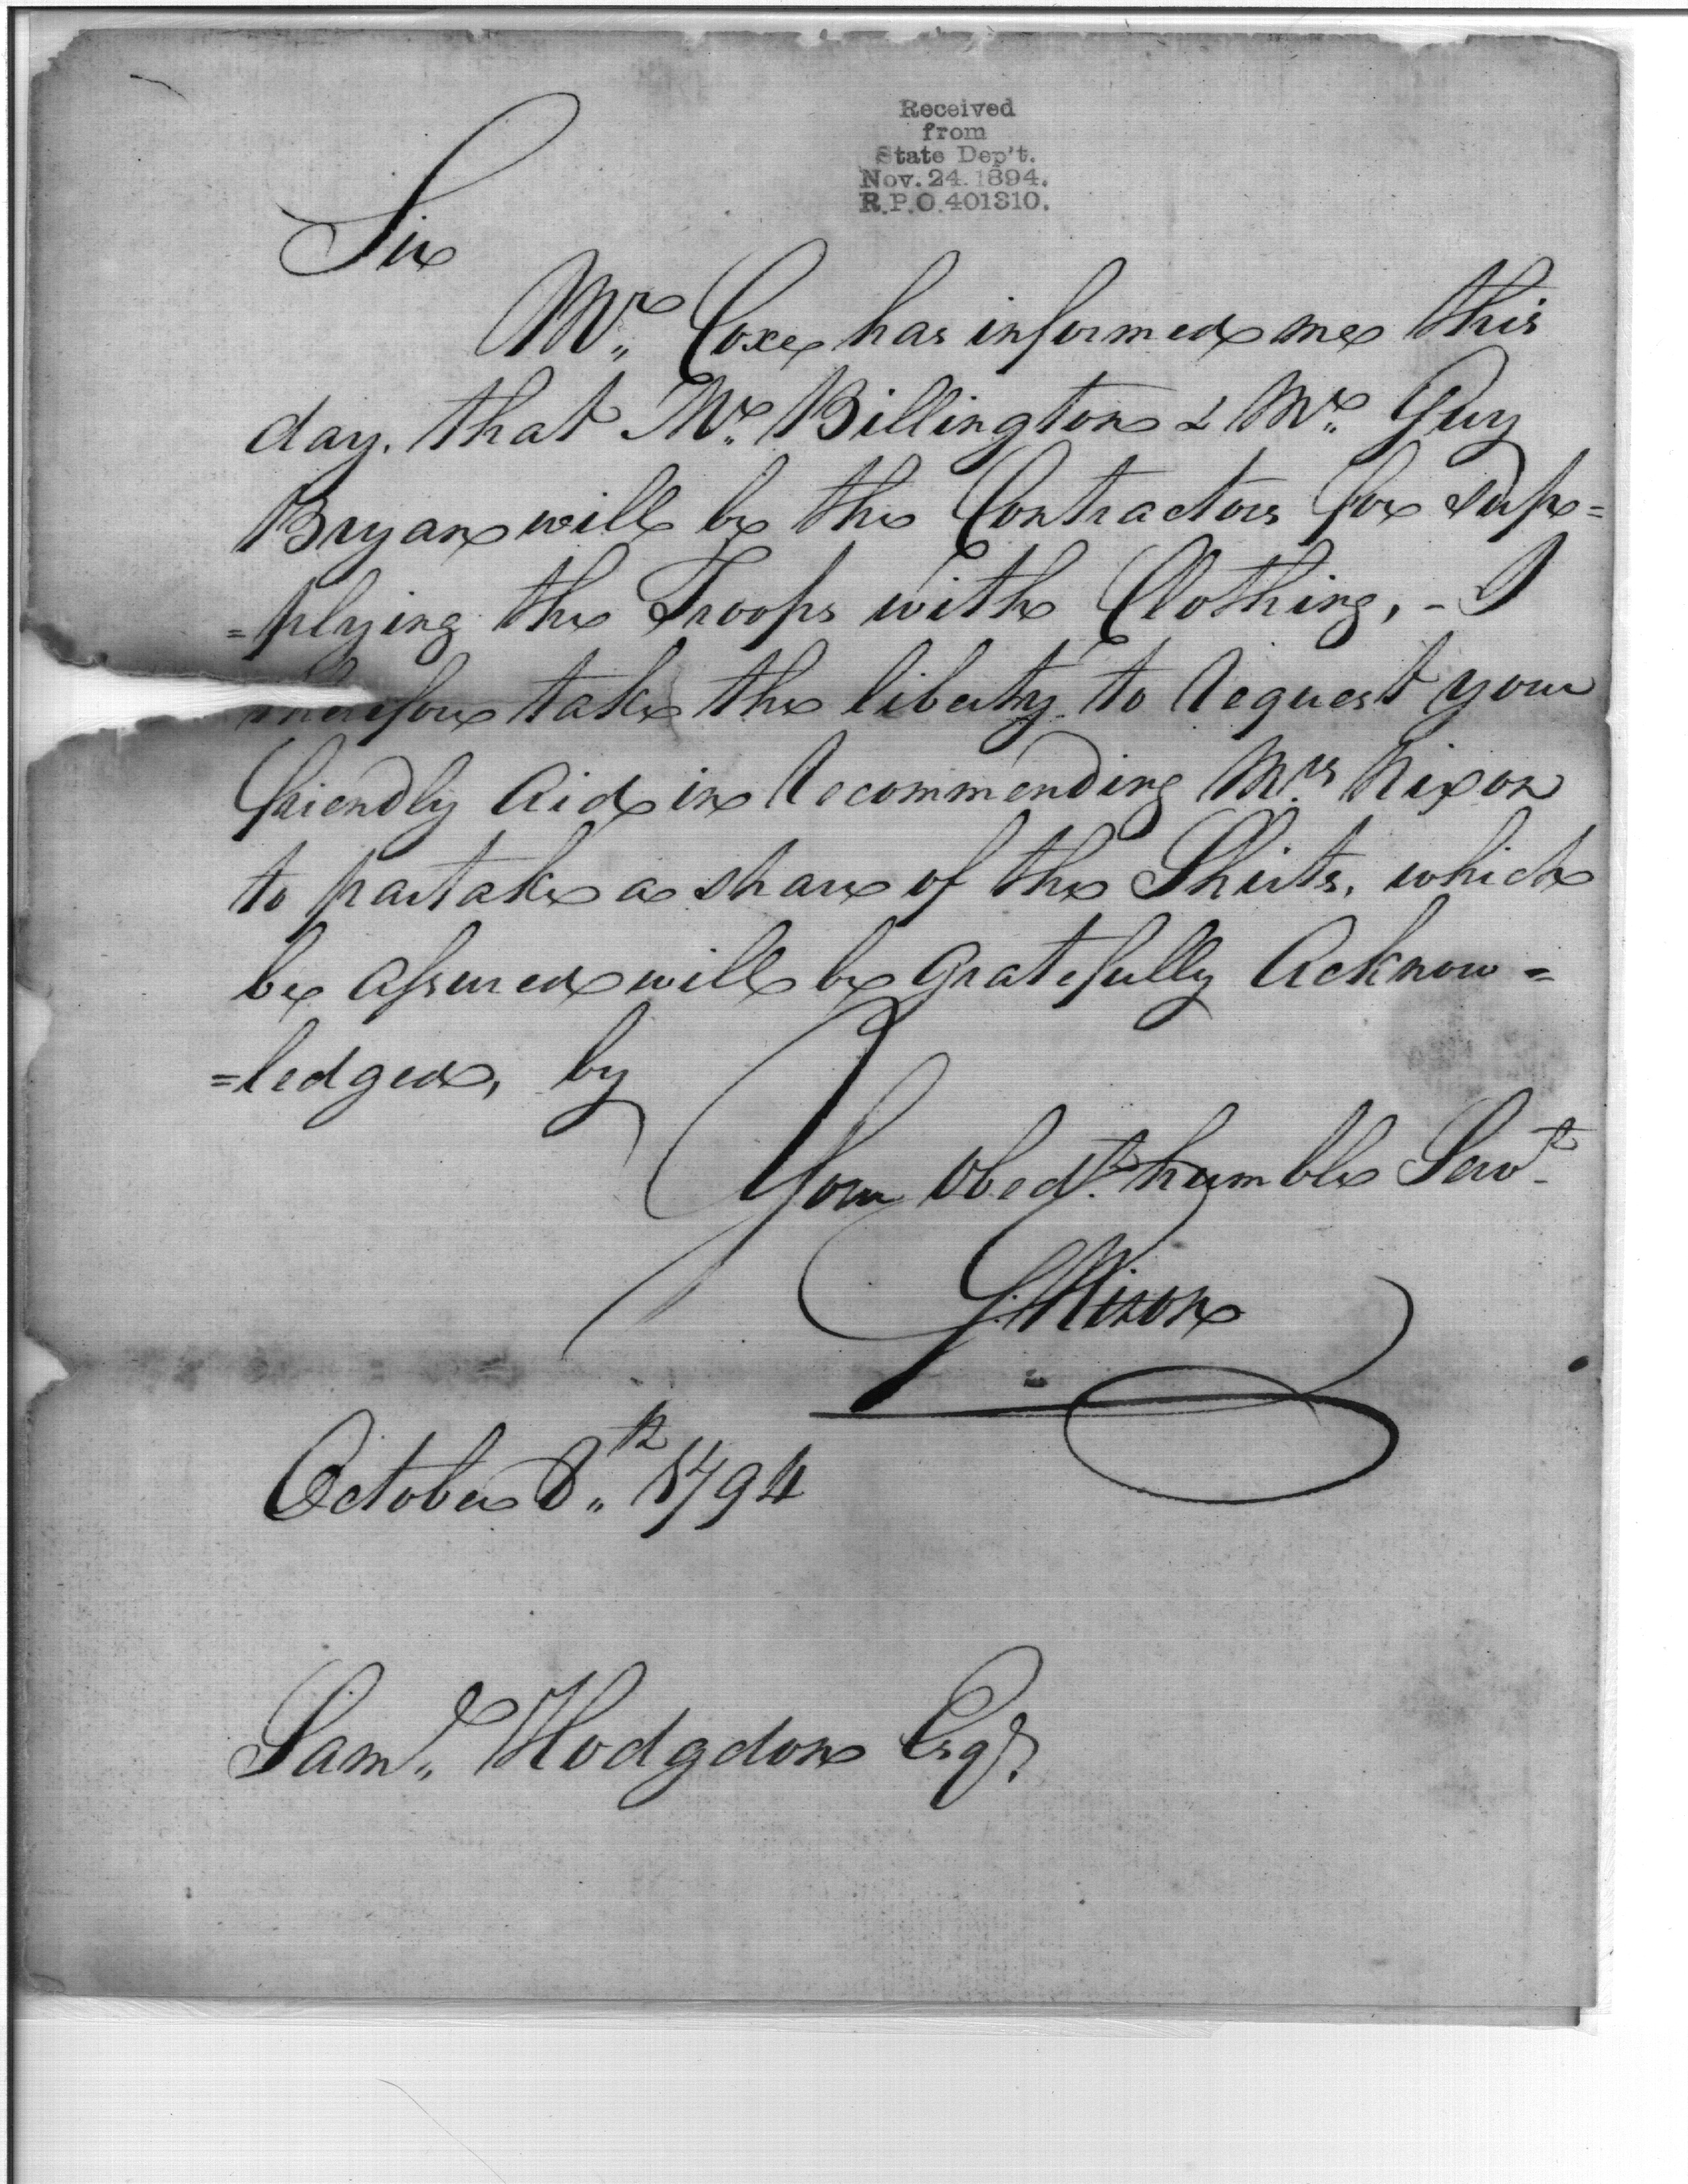 Received
from
State Dep't.
Nov. 24. 1894.
R.P.O. 401310.
Sir
Mr. Coxe has informed me this
day, that Mr. Billington & Mr. Guy
Bryan will be the Contractors for sup=
=plying the Troops with Clothing, - I
therefore take the liberty to request your
friendly Aid in recommending Mrs Nixon
to partake a share of the Shirts, which
be assured will be gratefully Acknow=
=ledged, by
Your obedt. humble Servt
G. Nixon
October 8th 1794
Saml. Hodgdon Esqr.